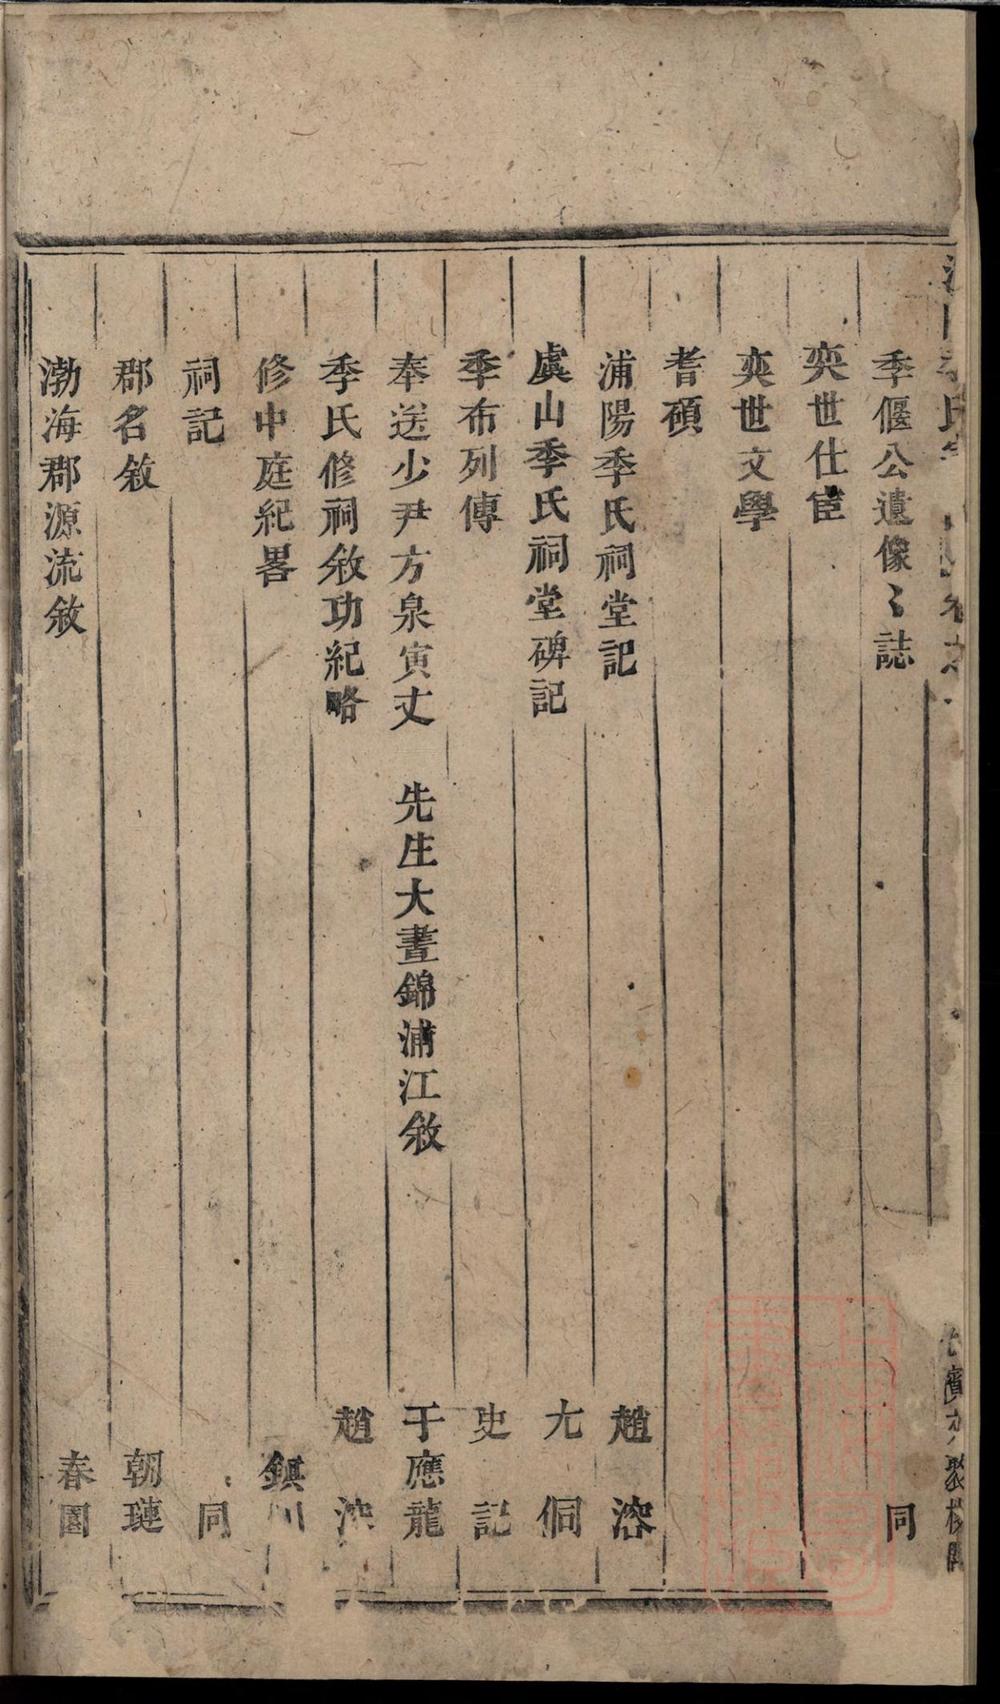 季偃公遺像〻誌 同
奕世仕宦
奕世文學
耆碩
浦陽季氏祠堂記 趙溶
虞山季氏祠堂碑記 尤侗
季布列傳 史記
奉送少尹方泉寅丈 先生大晝錦浦江敘 于應龍
季氏修祠敘功紀略 趙
修中庭紀畧 鎮川
祠記 同
郡名敘 朝璉
渤海郡源流敘 春園